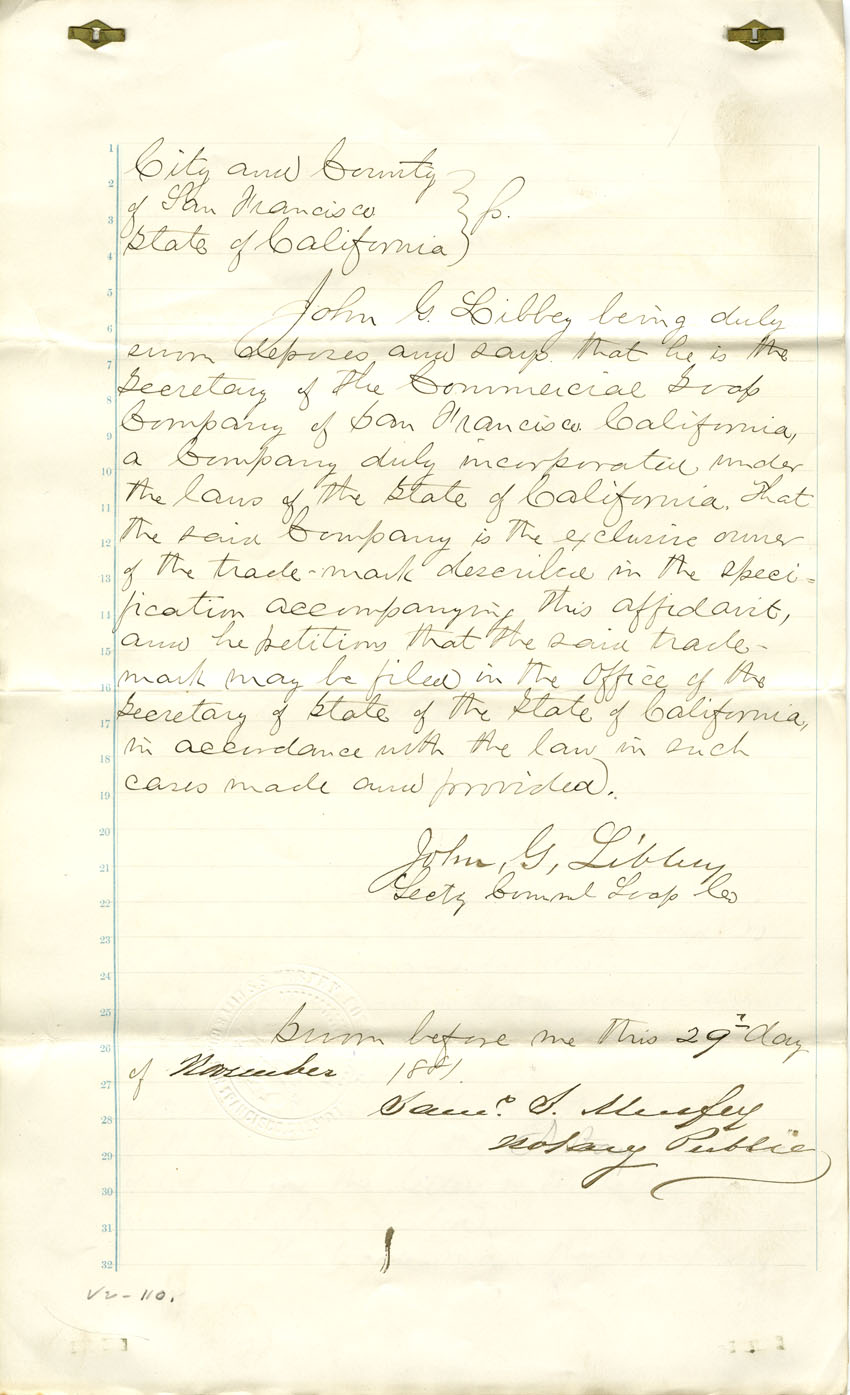 City and County
of San Francisco } ss.
State of California
John G. Libbey being duly
sworn deposes and says that he is the
Secretary of The Commercial Soap
Company of San Francisco California,
a Company duly incorporated under
the laws of the State of California. That
the said Company is the exclusive owner
of the trade-mark described in the speci-
fication accompanying this affidavit,
and he petitions that the said trade-
mark may be filed in the office of the
Secretary of State of the State of California,
in accordance with the law in such
cases made and provided.
John, G, Libbey
Secty Comml Soap Co
Sworn before me this 29 day
of November 1881
Saml. S. Murfey
Notary Public
V2-110.
1
2
3
4
5
6
7
8
9
10
11
12
13
14
15
16
17
18
19
20
21
22
23
24
25
26
27
28
29
30
31
32